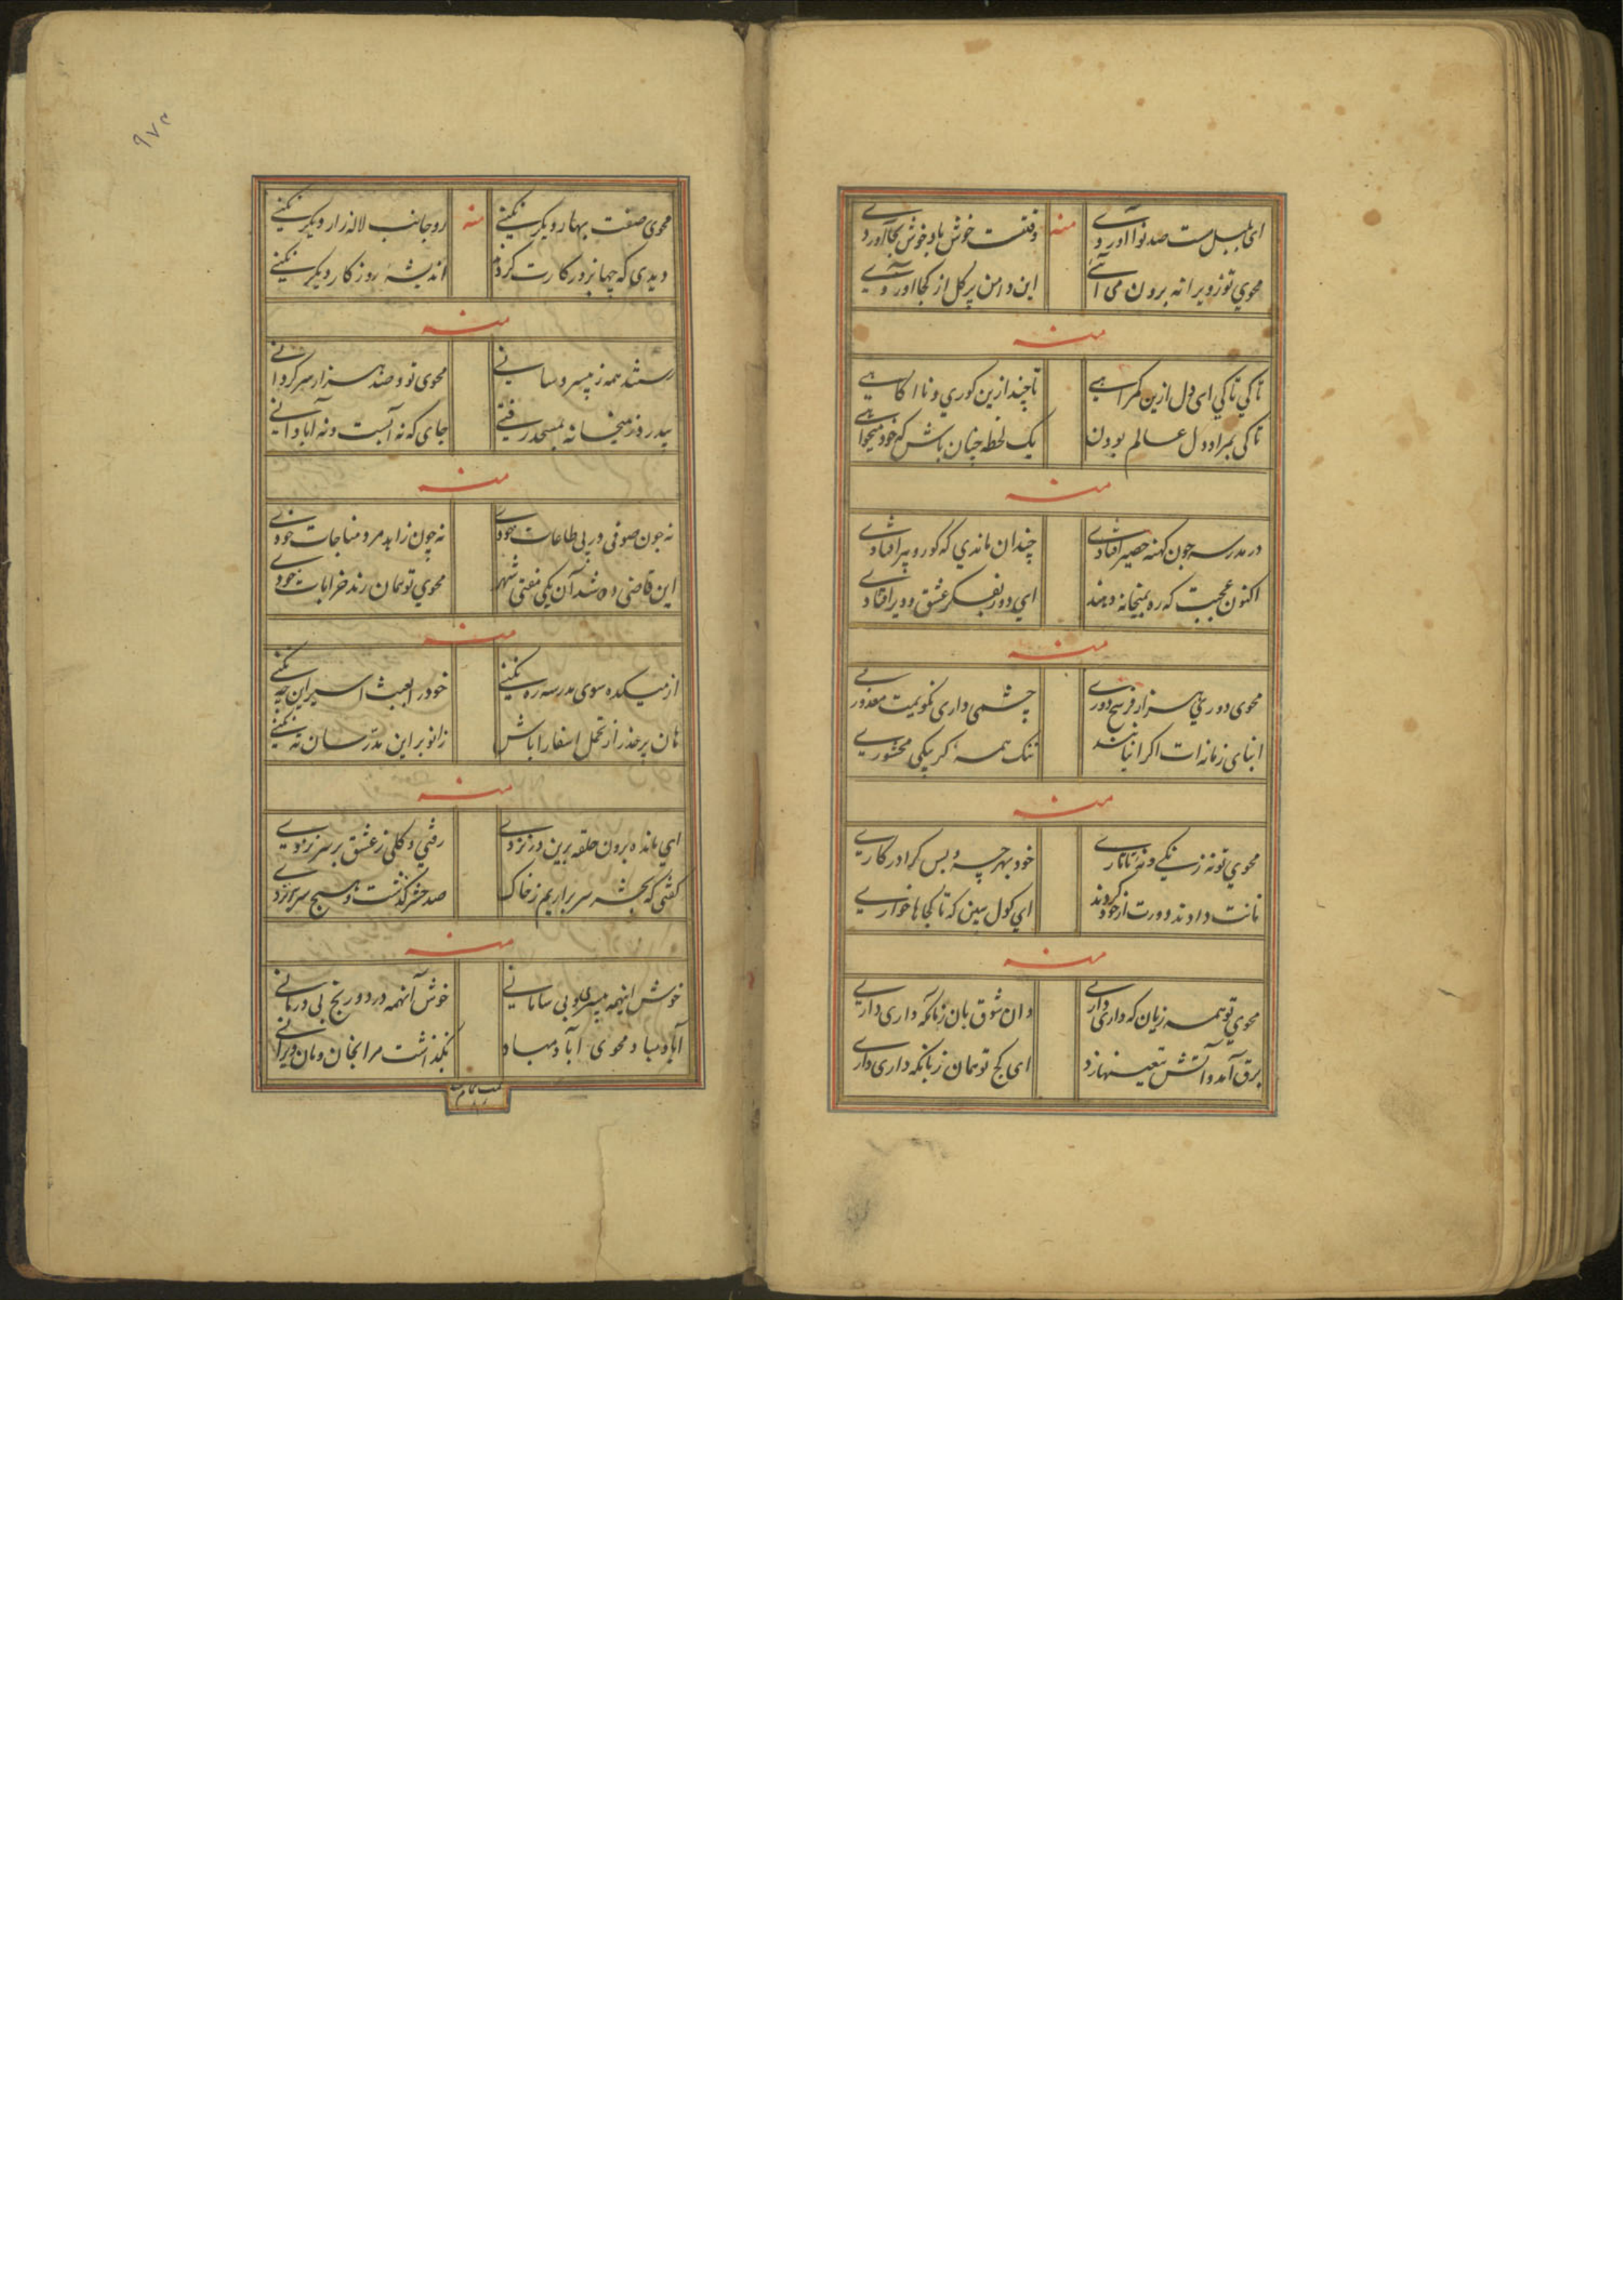 ای بلبل مست صد نوا آوردی منه وقتت خوش باد خوش بجا آوردی
محوي تو ز ویرانه برون می آئی این دامن پر گل از کجا آوردی
منه
تا کي تا کي ای دل ازین کمراهی تا چند ازین کوري و نا اکاهی
تا کی بمراد دل عالم بودن یک لحظه چنان باش که خود میخواهی
منه
در مدرسه چون کهنه حصیر افتادی چندان ماندي که کور و پیر افتادی
اکنون عجبست که ره بمیخانه دهند ای دور بفکر عشق و دیر افتادی
منه
محوی دوری هزار فرسخ دوری چشمی داری نکویمت معذوری
ابنای زمانه ات اکر اینانند ننک همه کر بیکی محشوری
منه
محوي تو نه زنیکی و نه تاتاری خود بهر چه و بس کرا در کاری
نانت دادند و ورت از خود کردند ای کول ببین که تا کجا ها خواری
منه
محوي تو همه زیان که داری داری وان شوق بان زیانکه داری داری
برق آمد و آتش بتعینها زد ای کج تو همان زیانکه داری داری
۹۷۳
محوی صفت بهار دیکر نکنی منه رو جانب لاله زار دیکر نکنی
دیدی که چها بروزکارت کردم اندیشه روزکار دیکر نکنی
منه
رستند همه ز بیسر و سامانی محوی تو و صد هزار سرکردانی
بیدرد ز میخانه بمسجد رفتی جای که نه آبست و نه آبادانی
منه
نه چون صوفی در پی طاعات خودی نه چون زاهد مرد مناجات خودی
این قاضی ده شد آن یکی مفتی شهر محوي تو همان رند خرابات خودی
منه
از میکده سوی مدرسه ره نکنی خود را بعبث اسیر این چه نکنی
هان بر حذر از تحمل اسفار اباش زانو بر این مدرسان ته نکنی
منه
ای مانده برون حلقه برین در نزدی رفتي و کلی ز عشق بر سر نزدی
کفتی که بحشر سر برآریم ز خاک صد حشر کذشت و هیچ سر بر نزدی
منه
خوش اینهمه بیسری و بی سامانی خوش آنهمه درد و رنج بی درمانی
آباد مباد محوی آباد مباد نکذاشت مرا بخان و مان ویرانی